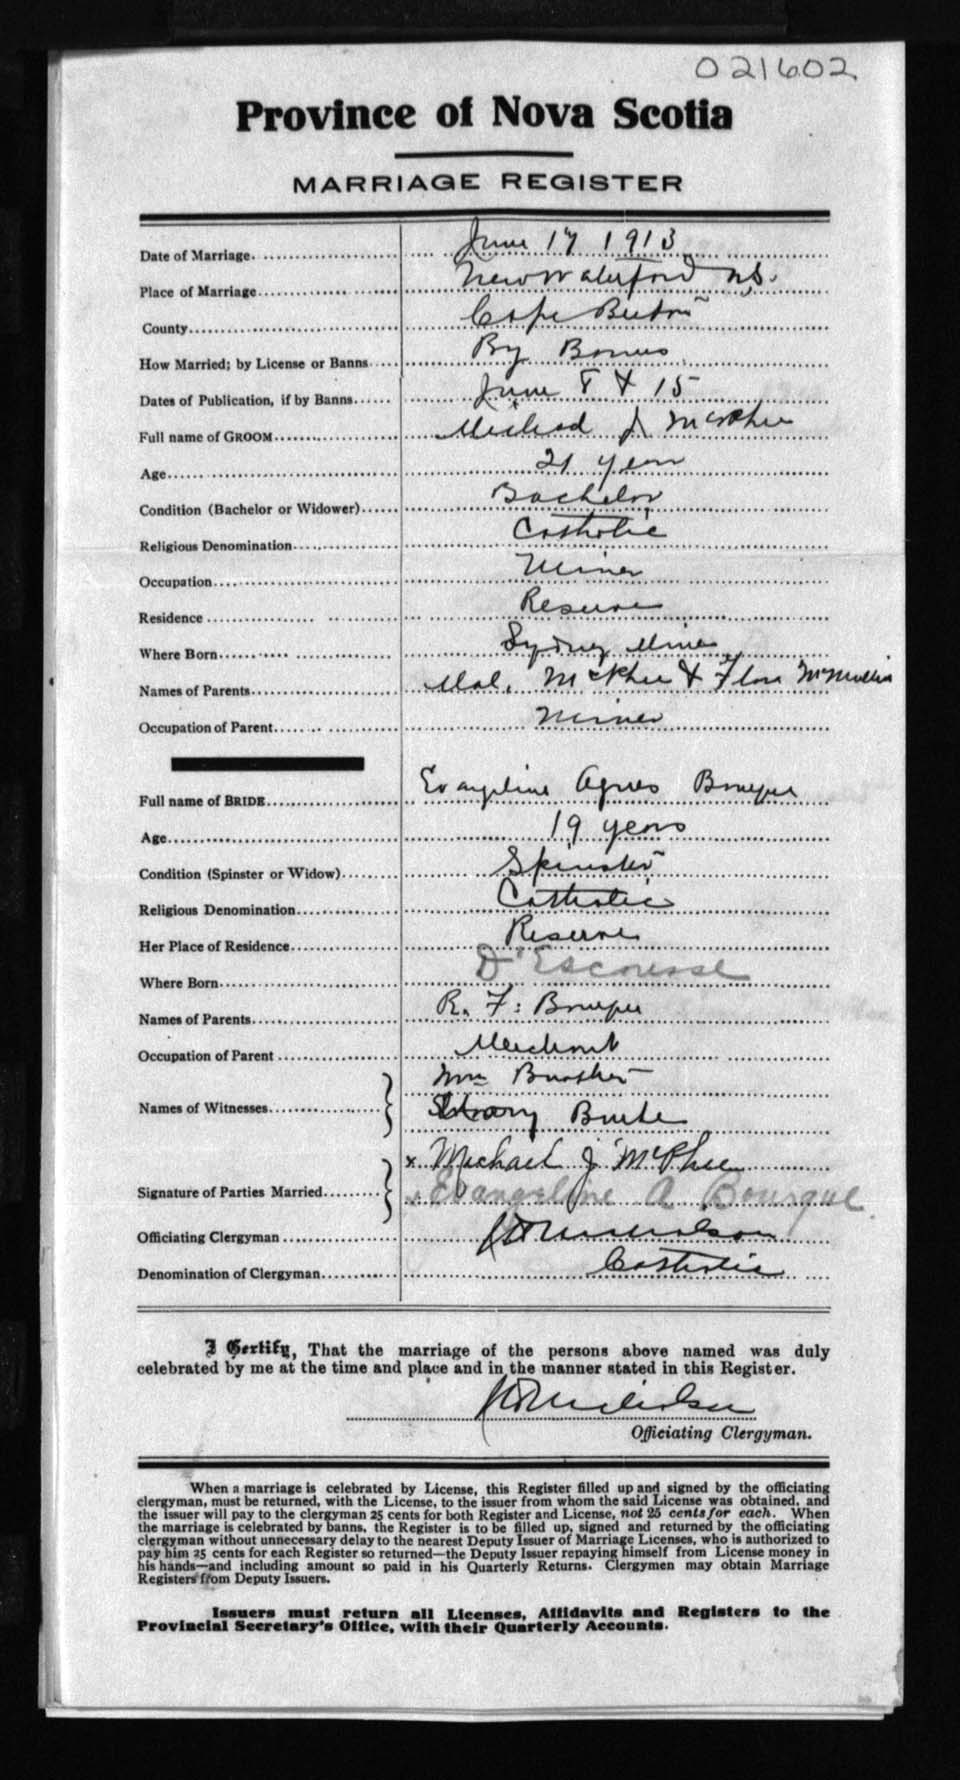 021602
Province of Nova Scotia
MARRIAGE REGISTER
Date of Marriage June 17 1913
Place of Marriage New Waterford N.S.
County Cape Breton
How Married; by License or Banns By Banns
Dates of Publication, if by Banns June 8 & 15
Full name of GROOM Michael J McPhee
Age 21 years
Condition (Bachelor or Widower) Bachelor
Religious Denomination Catholic
Occupation Miner
Residence Reserve
Where Born Sydney Mines
Names of Parents Mal. McPhee & Flora McMullin
Occupation of Parent Miner
Full name of BRIDE Evangeline Agnes Bourque
Age 19 years
Condition (Spinster or Widow) Spinster
Religious Denomination Catholic
Her Place of Residence Reserve
Where Born D'Escousse
Names of Parents R. F. Bourque
Occupation of Parent Merchant
Names of Witnesses Wm
Mary Burke
Signature of Parties Married x Michael J McPhee
x Evangeline A Bourque
Officiating Clergyman Nicholson
Denomination of Clergyman Catholic
I Certify, That the marriage of the persons above named was duly
celebrated by me at the time and place and in the manner stated in this Register.
Nicholson
Officiating Clergyman.
When a marriage is celebrated by License, this Register filled up and signed by the officiating
clergyman, must be returned, with the License, to the issuer from whom the said License was obtained, and
the issuer will pay to the clergyman 25 cents for both Register and License, not 25 cents for each. When
the marriage is celebrated by banns, the Register is to be filled up, signed and returned by the officiating
clergyman without unnecessary delay to the nearest Deputy Issuer of Marriage Licenses, who is authorized to
pay him 25 cents for each Register so returned—the Deputy Issuer repaying himself from License money in
his hands—and including amount so paid in his Quarterly Returns. Clergymen may obtain Marriage
Registers from Deputy Issuers.
Issuers must return all Licenses, Affidavits and Registers to the
Provincial Secretary's Office, with their Quarterly Accounts.